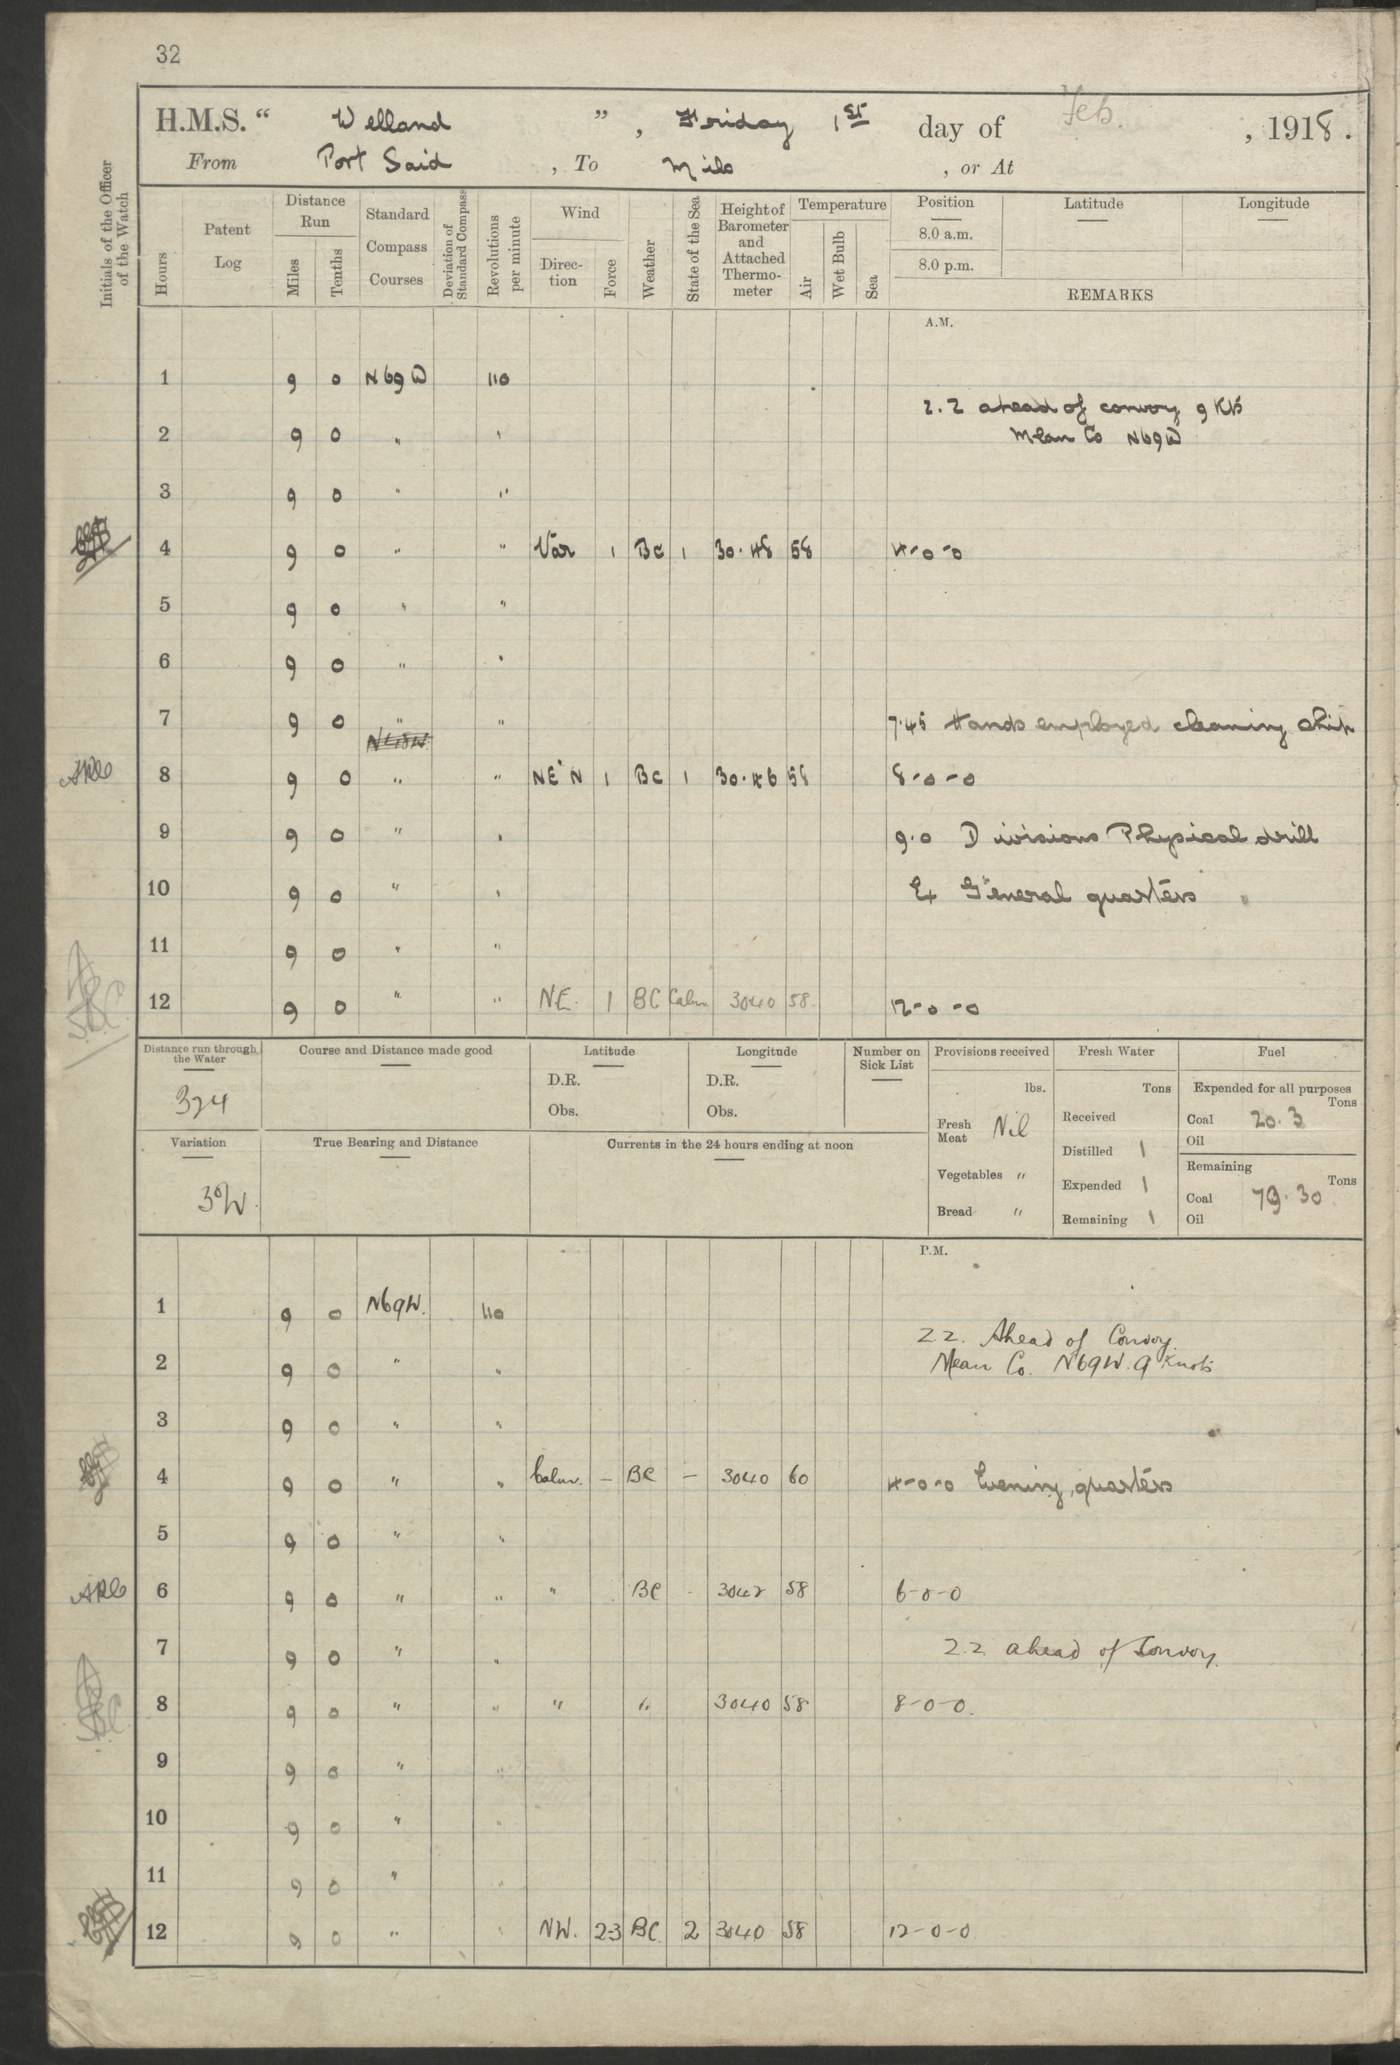 32
H.M.S. " Welland ", Friday 1st day of Feb. , 1918.
From Port Said , To Milo , or At
Initials of the Officer of the Watch
Hours
Patent Log
Distance Run
Miles
Tenths
Standard Compass Courses
Deviation of Standard Compass
Revolutions per minute
Wind
Direc-tion
Force
Weather
State of the Sea
Height of Barometer and Attached Thermo-meter
Temperature
Air
Wet Bulb
Sea
Position
8.0 a.m.
8.0 p.m.
Latitude
Longitude
REMARKS
A.M.
1 9 0 N69W 110
2.2 ahead of convoy 9 Kts
2 9 0 " " Mean Co N69W
3 9 0 " "
4 9 0 " " Var 1 BC 1 30.48 58 4-0-0
5 9 0 " "
6 9 0 " "
7 9 0 " " 7.45 Hands employed cleaning ship
8 9 0 " " NE'N 1 BC 1 30.46 58 8-0-0
9 9 0 " " 9.0 Divisions Physical drill
10 9 0 " " Ex General quarters
11 9 0 " "
12 9 0 " " NE. 1 BC Calm 3040 58. 12-0-0
Distance run through the Water
324
Course and Distance made good
Latitude
D.R.
Obs.
Longitude
D.R.
Obs.
Number on Sick List
Provisions received
lbs.
Fresh Meat Nil
Vegetables "
Bread "
Fresh Water
Tons
Received
Distilled 1
Expended 1
Remaining 1
Fuel
Expended for all purposes
Tons
Coal 20.3
Oil
Remaining
Tons
Coal 79.30
Oil
Variation
3°W.
True Bearing and Distance
Currents in the 24 hours ending at noon
P.M.
1 9 0 N69W. 110
22. Ahead of Convoy
2 9 0 " " Mean Co. N69W. 9 Knots
3 9 0 " "
4 9 0 " " Calm. - BC - 3040 60 4-0-0 Evening quarters
5 9 0 " "
6 9 0 " " " BC - 3042 58 6-0-0
7 9 0 " " 22 ahead of Convoy.
8 9 0 " " " " 3040 58 8-0-0.
9 9 0 " "
10 9 0 " "
11 9 0 " "
12 9 0 " " NW. 23 BC 2 3040 58 12-0-0